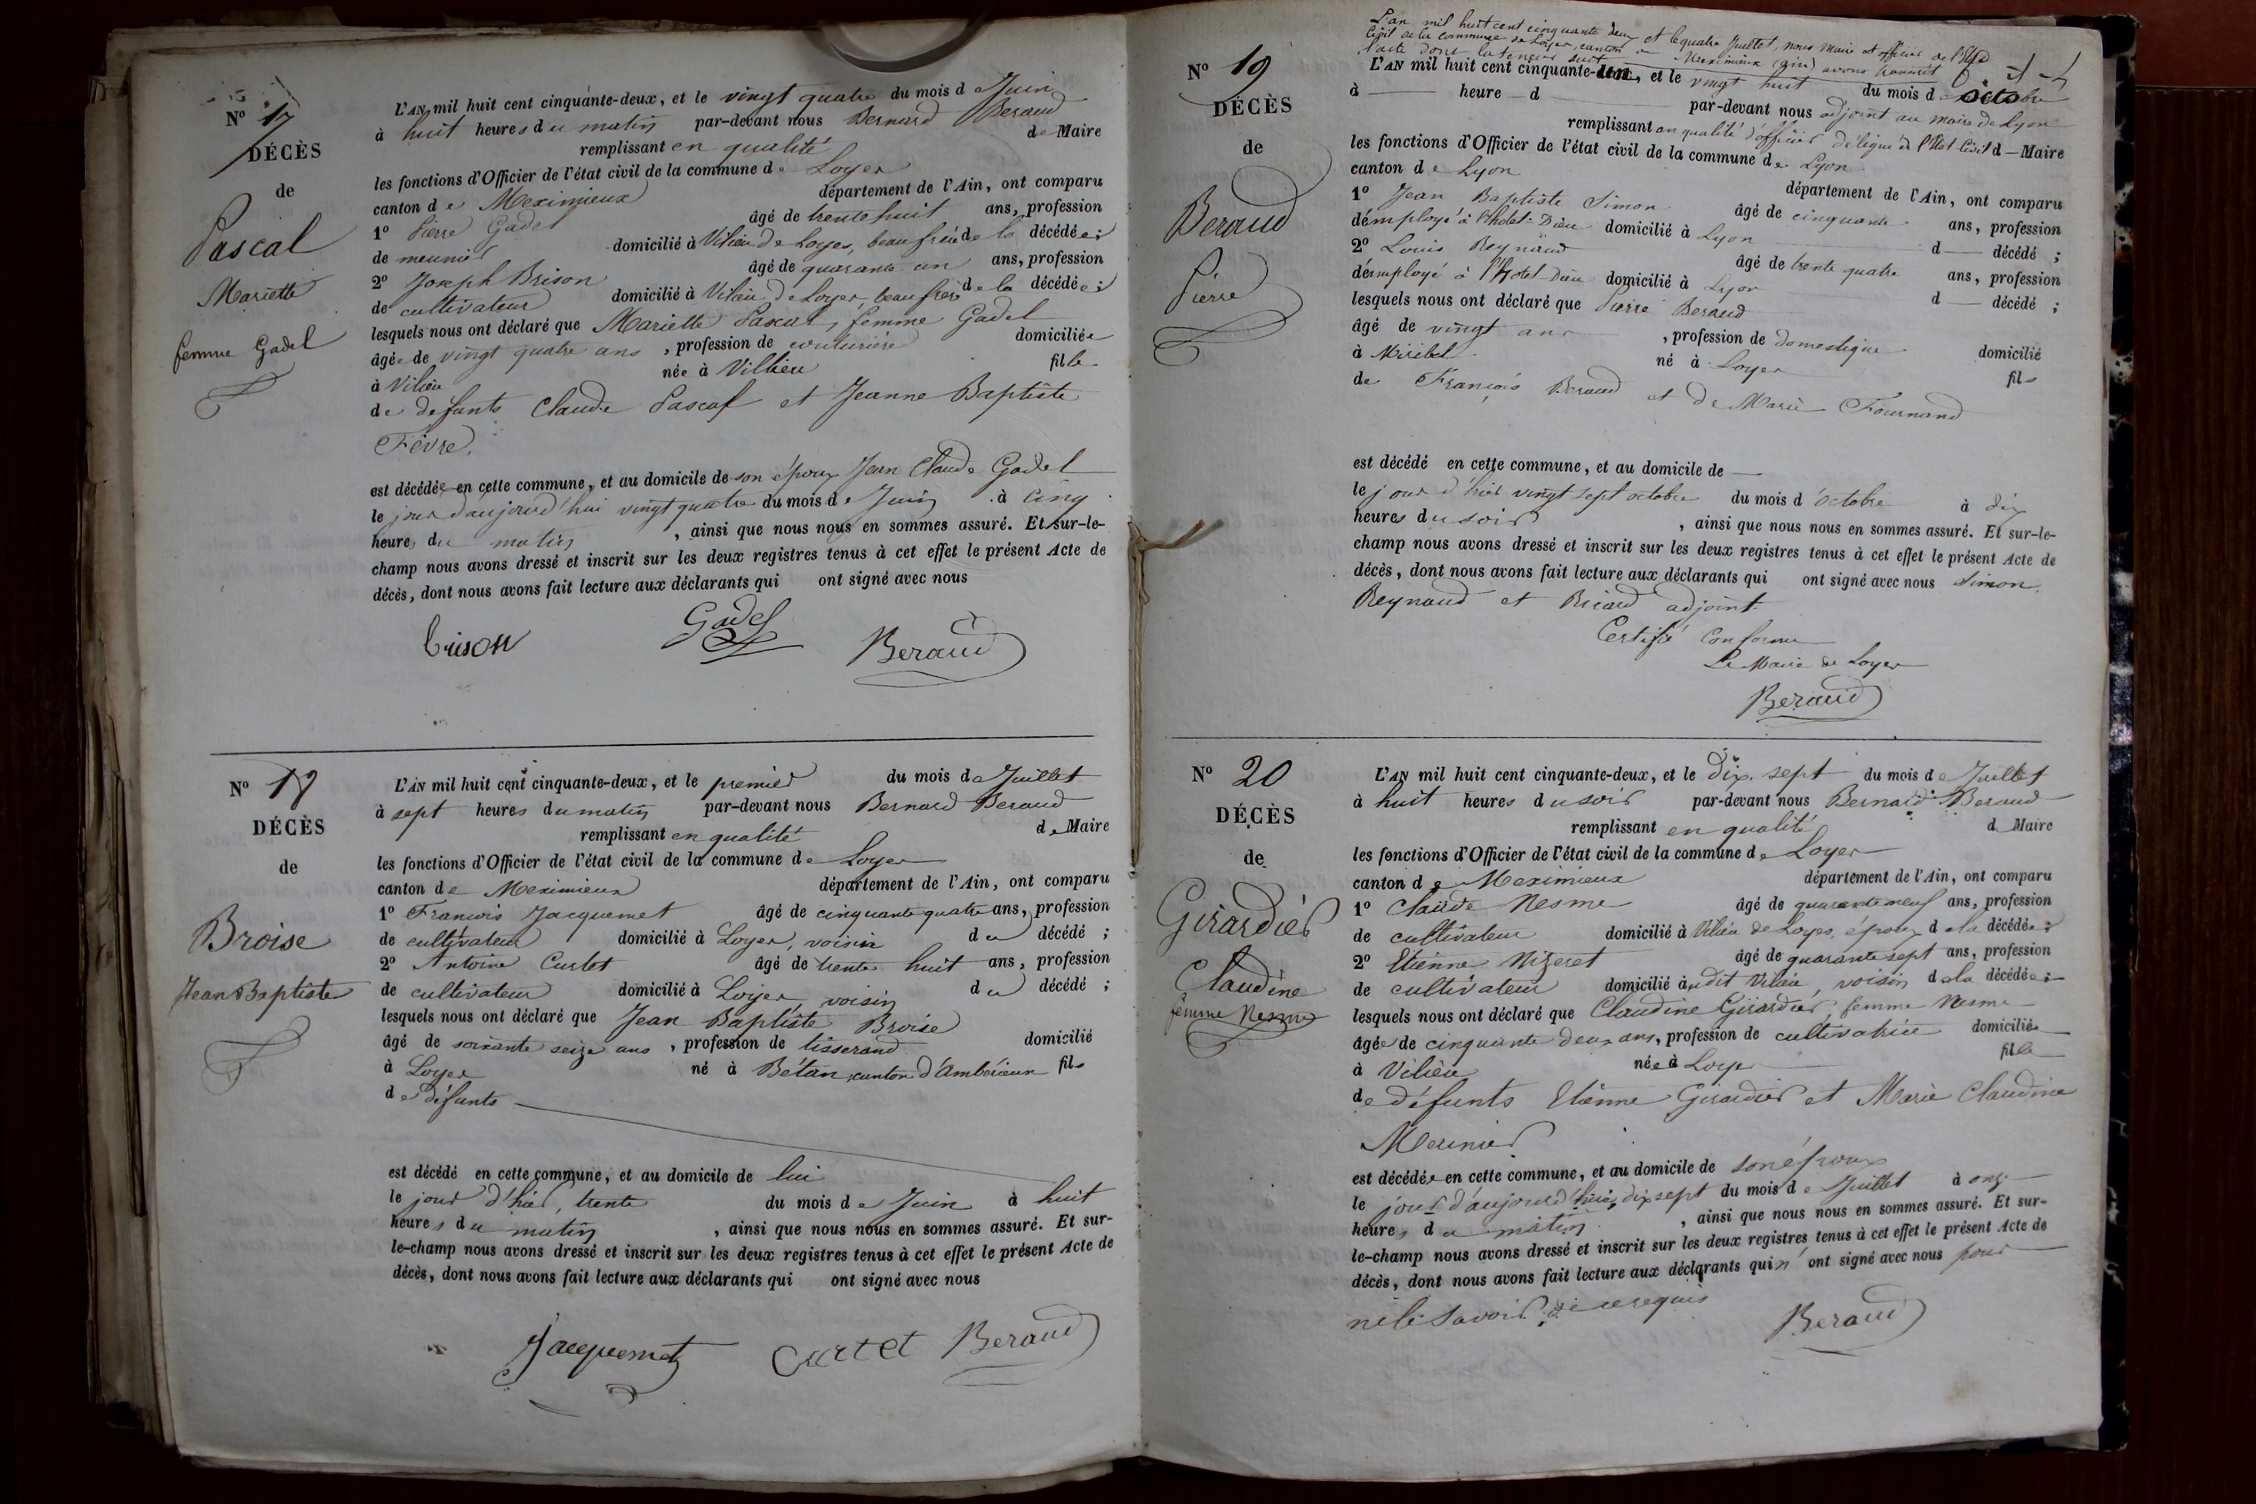 N° 17
DÉCÈS
de
Pascal
Mariette
femme Gadel
L'AN mil huit cent cinquante-deux, et le vingt quatre du mois de Juin
à huit heures du matin par-devant nous Bernard Beraud
remplissant en qualité de Maire
les fonctions d'Officier de l'état civil de la commune de Loyes
canton de Meximieux département de l'Ain, ont comparu
1° Pierre Gadel âgé de trente huit ans, profession
de meunier domicilié à Vilieu de Loyes, beau frère de la décédée ;
2° Joseph Brison âgé de quarante un ans, profession
de cultivateur domicilié à Vilieu de Loyes, beau frère de la décédée ;
lesquels nous ont déclaré que Mariette Pascal, femme Gadel
âgée de vingt quatre ans, profession de couturière domiciliée
à Vilieu née à Villieu fille
de defunts Claude Pascal et Jeanne Baptiste
Fèvre.
est décédée en cette commune, et au domicile de son époux Jean Claude Gadel
le jour d'aujourd'hui vingt quatre du mois de Juin à cinq
heures du matin, ainsi que nous nous en sommes assuré. Et sur-le-
champ nous avons dressé et inscrit sur les deux registres tenus à cet effet le présent Acte de
décès, dont nous avons fait lecture aux déclarants qui ont signé avec nous
brison Gadel Beraud
N° 18
DÉCÈS
de
Broise
Jean Baptiste
L'AN mil huit cent cinquante-deux, et le premier du mois de Juillet
à sept heures du matin par-devant nous Bernard Beraud
remplissant en qualité de Maire
les fonctions d'Officier de l'état civil de la commune de Loyes
canton de Meximieux département de l'Ain, ont comparu
1° François Jacquemet âgé de cinquante quatre ans, profession
de cultivateur domicilié à Loyes, voisin du décédé ;
2° Antoine Curtet âgé de trente huit ans, profession
de cultivateur domicilié à Loyes, voisin du décédé ;
lesquels nous ont déclaré que Jean Baptiste Broise
âgé de soixante seize ans, profession de tisserand domicilié
à Loyes né à Bétan, canton d'Ambérieux fils
de défunts
est décédé en cette commune, et au domicile de lui
le jour d'hier, trente du mois de Juin à huit
heures du matin, ainsi que nous nous en sommes assuré. Et sur-
le-champ nous avons dressé et inscrit sur les deux registres tenus à cet effet le présent Acte de
décès, dont nous avons fait lecture aux déclarants qui ont signé avec nous
Jacquemet Curtet Beraud
L'an mil huit cent cinquante deux et le quatre Juillet, nous Maire et officier de l'Etat
Civil de la commune de Loyes, canton de Meximieux (Ain) avons transcrit
l'acte dont la teneur suit
N° 19
DÉCÈS
de
Beraud
Pierre
L'AN mil huit cent cinquante-un, et le vingt huit du mois d'Octobre
à heure d par-devant nous adjoint au maire de Lyon
remplissant en qualité d'officier délégué de l'Etat Civil d Maire
les fonctions d'Officier de l'état civil de la commune de Lyon
canton de Lyon département de l'Ain, ont comparu
1° Jean Baptiste Simon âgé de cinquante ans, profession
d'employé à l'hotel-Dieu domicilié à Lyon d décédé ;
2° Louis Reynaud âgé de trente quatre ans, profession
d'employé à l'Hotel-Dieu domicilié à Lyon d décédé ;
lesquels nous ont déclaré que Pierre Beraud
âgé de vingt ans, profession de domestique domicilié
à Miribel né à Loyes fils
de François Beraud et de Marie Fournand
est décédé en cette commune, et au domicile de
le jour d'hier vingt sept octobre du mois d'octobre à dix
heures du soir, ainsi que nous nous en sommes assuré. Et sur-le-
champ nous avons dressé et inscrit sur les deux registres tenus à cet effet le présent Acte de
décès, dont nous avons fait lecture aux déclarants qui ont signé avec nous Simon
Reynaud et Ricard adjoint.
Certifié Conforme
Le Maire de Loyes
Beraud
N° 20
DÉCÈS
de
Girardier
Claudine
femme Nesme
L'AN mil huit cent cinquante-deux, et le dix sept du mois de Juillet
à huit heures du soir par-devant nous Bernard Beraud
remplissant en qualité de Maire
les fonctions d'Officier de l'état civil de la commune de Loyes
canton de Meximieux département de l'Ain, ont comparu
1° Claude Nesme âgé de quarante neuf ans, profession
de cultivateur domicilié à Vilieu de Loyes, époux de la décédée ;
2° Etienne Nizeret âgé de quarante sept ans, profession
de cultivateur domicilié audit Vilieu, voisin de la décédée ;
lesquels nous ont déclaré que Claudine Girardier, femme Nesme
âgée de cinquante deux ans, profession de cultivatrice domiciliée
à Vilieu née à Loyes fille
de défunts Etienne Girardier et Marie Claudine
Merinier
est décédée en cette commune, et au domicile de son époux
le jour d'aujourd'hui, dix sept du mois de Juillet à onze
heures du matin, ainsi que nous nous en sommes assuré. Et sur-
le-champ nous avons dressé et inscrit sur les deux registres tenus à cet effet le présent Acte de
décès, dont nous avons fait lecture aux déclarants qui n'ont signé avec nous pour
ne le savoir de ce requis
Beraud